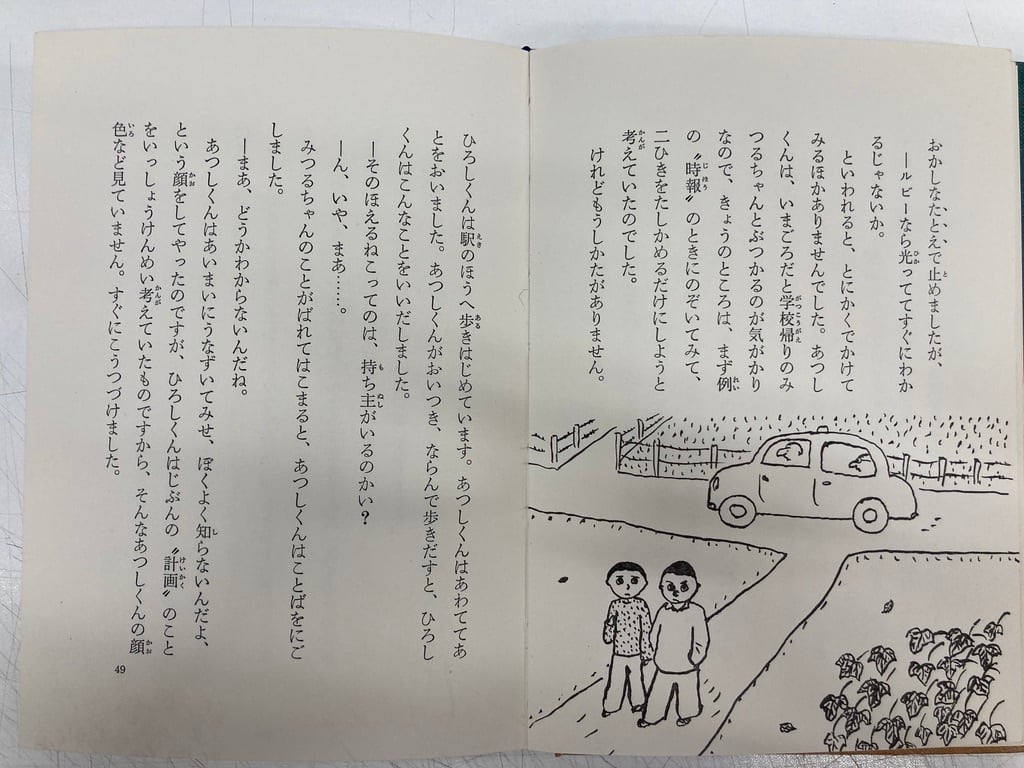 おかしなたとえで止めましたが、
―ルビーなら光っててすぐにわか
るじゃないか。
といわれると、とにかくでかけて
みるほかありませんでした。あつし
くんは、いまごろだと学校帰りのみ
つるちゃんとぶつかるのが気がかり
なので、きょうのところは、まず例
の〝時報〟のときにのぞいてみて、
二ひきをたしかめるだけにしようと
考えていたのでした。
けれどもうしかたがありません。
ひろしくんは駅のほうへ歩きはじめています。あつしくんはあわててあ
とをおいました。あつしくんがおいつき、ならんで歩きだすと、ひろし
くんはこんなことをいいだしました。
―そのほえるねこってのは、持ち主がいるのかい？
―ん、いや、まあ……。
みつるちゃんのことがばれてはこまると、あつしくんはことばをにご
しました。
―まあ、どうかわからないんだね。
あつしくんはあいまいにうなずいてみせ、ぼくよく知らないんだよ、
という顔をしてやったのですが、ひろしくんはじぶんの〝計画〟のこと
をいっしょうけんめい考えていたものですから、そんなあつしくんの顔
色など見ていません。すぐにこうつづけました。
49